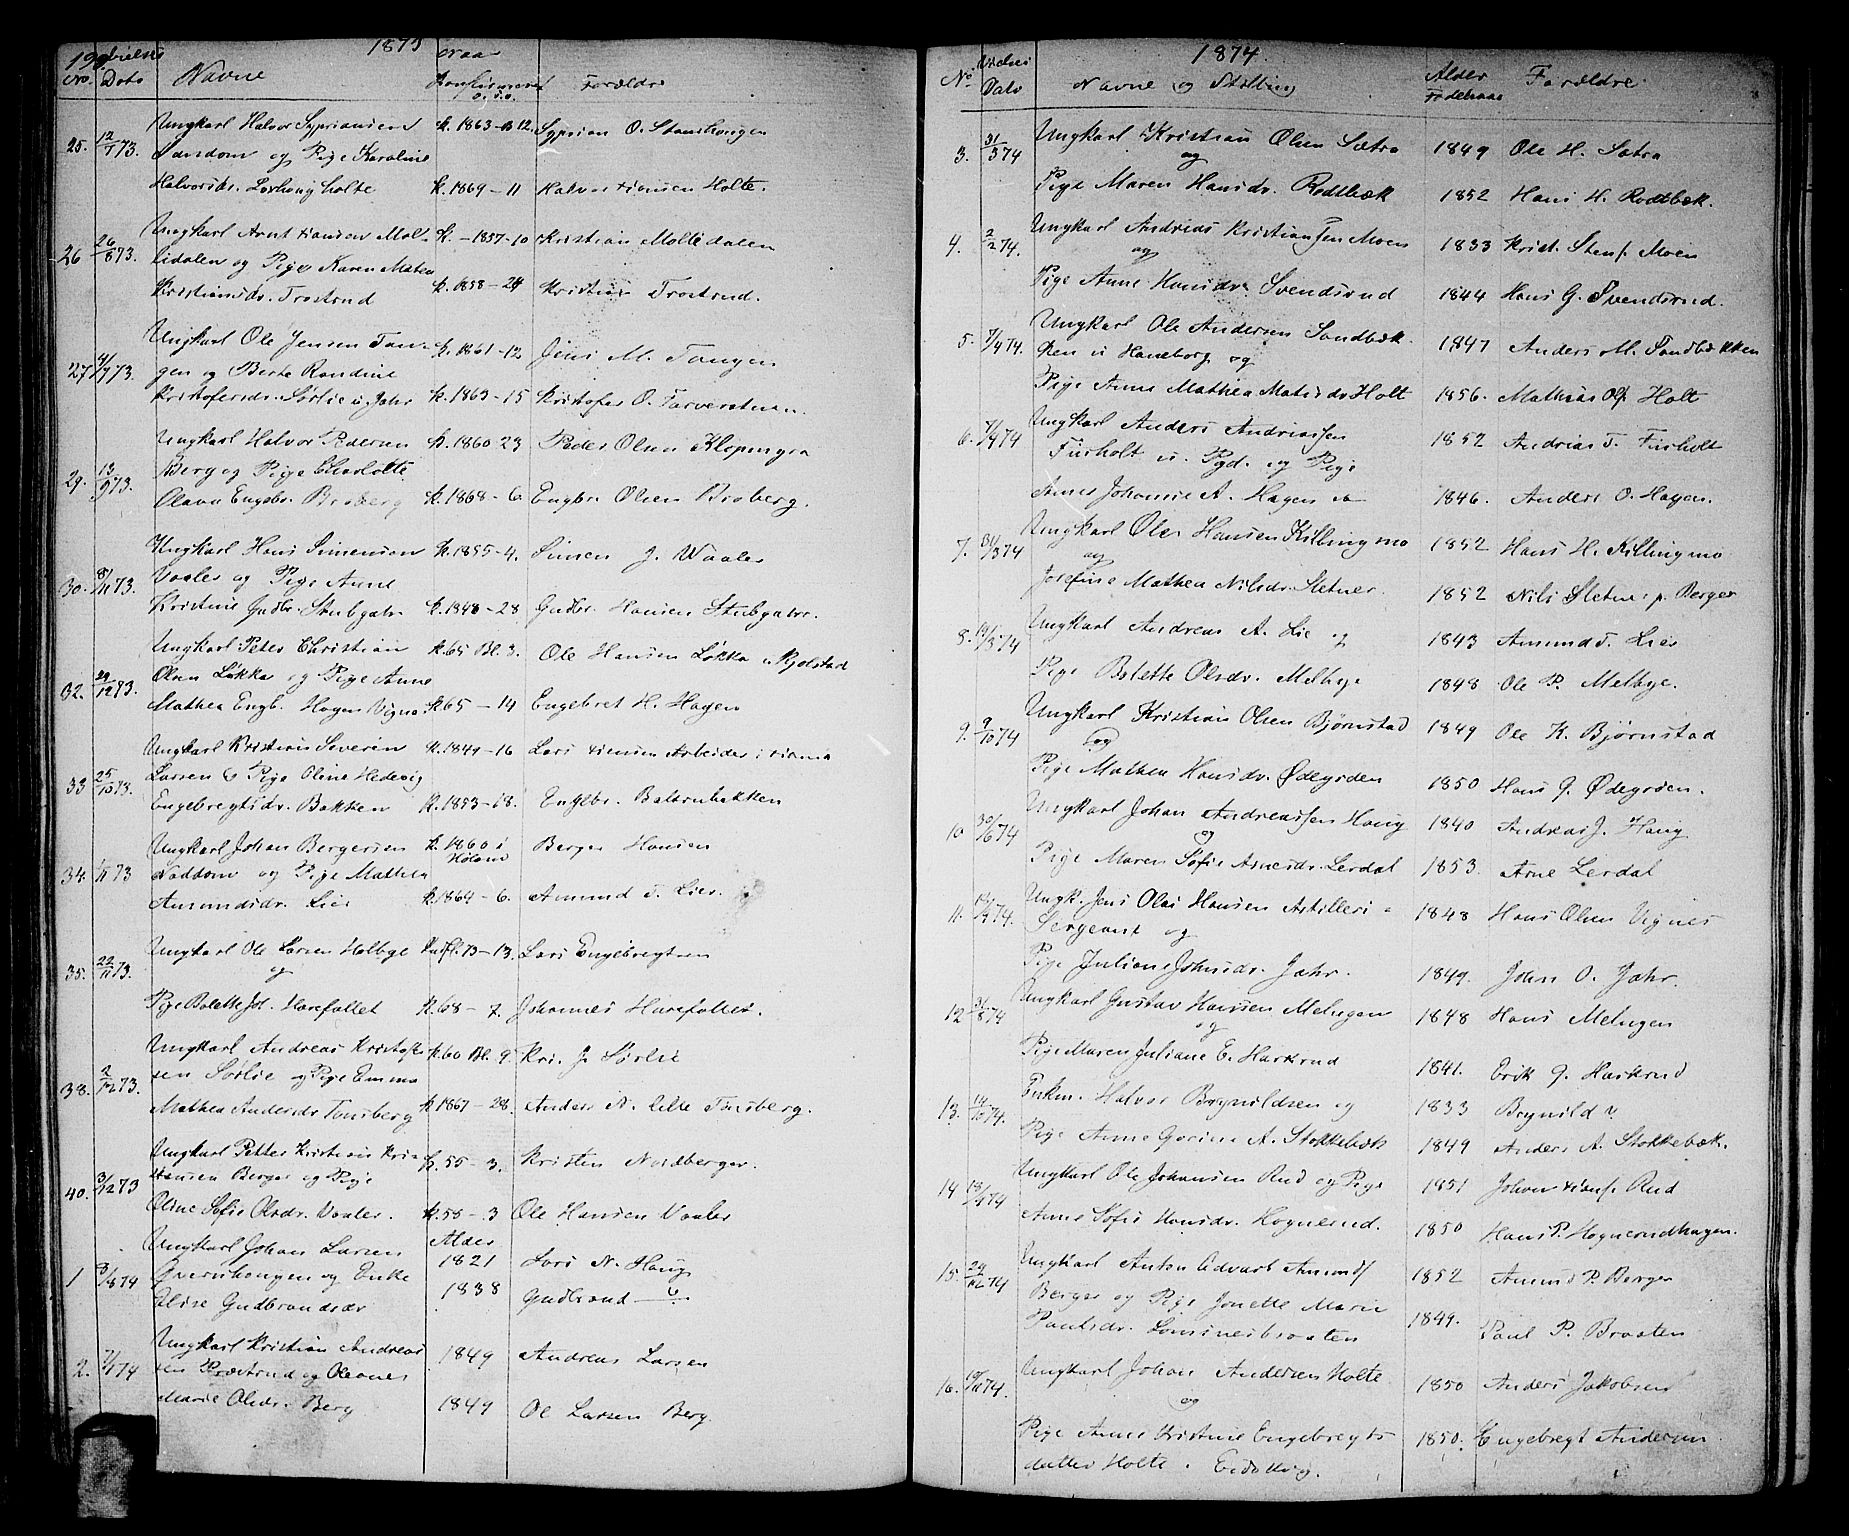 1873
No. Vielses Dato Navne Foræld​re
25. 12/1 73. Ungkarl Halvor Syprianssen k. 1863-B 12. Syprian O. Stenshougen
Sandom og Pige Karoline
Halvorsdr. holte k. 1869-11 Halvor Holte.
26 26/8 73. Ungkarl Arnt k. -1857-10 Kristian Mollidalen
lidalen og Pige Karen Mathea
Kristiansdr. Trostrud k. 1858-24 Kristian Trostrud.
27 4/7 73. Ungkarl Ole Jensen Tan- k. 1861-12 Jens M. Tangen
gen og Berte Randine
Kristofersdr. Sørlie u. Jahr k. 1863-15 Kristofer O.
Ungkarl Halvor Pedersen k. 1860-23 Peder Olsen
29. 13/9 73. Berg og Pige Charlotte
Olava Engebr. Broberg k. 1868-6. Engbr. Olsen Broberg.
Ungkarl Hans Simensen k. 1855-4. Simen J. Waaler
30. 8/11 73. Vaaler og Pige Anne
Kristine Gudbr. Stubgabr. k. 1848-28 Gudbr. Hansen Stubgabr.
Ungkarl Peter Christian k. 65 Bl. 3. Ole Hansen Løkka u. Kjolstad
32. 29/12 73. Olsen Løkka og Pige Anne
Mathea Engb. Hagen Vignes k. 65-14 Engebret H. Hagen
Ungkarl Kristian Severin k. 1849-16 Lars Arbeider i
33 25/10 73. Larsen & Pige Oline Hedevig
Engebregtsdr. Bakken k. 1853-18. Engebr.
Ungkarl Johan Bergersen k. 1860 i Høland Berger Hansen
34. 1/11 73 Naddom og Pige Mathea
Amundsdr. Lier k. 1864-6. Amund T. Lier.
Ungkarl Ole Larsen Melbye 73-13. Lars Engebregtsen
35. 22/11 73. og
Pige Bolette Joh. Harefallet k. 68-7. Johannes Harefallet.
Ungkarl Andreas Kristofer k. 60 Bl. 9. Kri. J. Sørlie
38. 2/12 73. sen Sørlie og Pige Emma
Mathea Andersdr. Tonsberg k. 1867-28. Anders N. lille Tonsberg.
Ungkarl Petter Kristian Kris k. 55-3. Kristen Nordberger.
40. 3/12 73 tiansen Berger og Pige
Oline Sofie Olsdr. Vaaler. k. 58-3 Ole Hansen Vaaler
Ungkarl Johan Larsen Alder 1821 Lars N. Haug
1 8/8 74 og Enke
Elise Gudbrandsdr 1838 Gudbrand
Ungkarl Kristian Andreas 1849 Andreas Larsen
2. 7/1 74 sen og Oleanes
Marie Olsdr. Berg 1849 Ol Larsen Berg.
1874.
No Vielses Dato Navne og Stilling Alder Fødelsaar Forældre
3. 31/3 74 Ungkarl Kristian Olsen Sætra 1849 Ole H. Sætra
og
Pige Maren Hansdr. Rodtbæk 1852 Hans H. Rodtbæk.
4. 2/2 74. Ungkarl Andreas Kristianssen Moen 1833 Krist. Stens. Moen
og
Pige Anne Hansdr. Svendsrud 1844 Hans G. Svendsrud.
5. 7/4 74. Ungkarl Ole Andersen Sandbæk- 1847 Anders M. Sandbækken
ken u Haneborg og
Pige Anne Mathea Matisdr Holt 1856. Mathias Ols. Holt
6. 7/4 74 Ungkarl Anders Andreassen 1852 Andreas T. Furholt
Furholt u. Pgd. og Pige
Anne Johanne A. Hagen 1846. Anders O. Hagen.
7. 31/3 74 Ungkarl Ole Hansen Killingmo 1852 Hans H. Killingmo
og
Josefine Mathea Nilsdr. Sletner. 1852 Nils Sletner p. Berger
8. 19/3 74 Ungkarl Andreas A. Lie og 1843 Amund T. Lier
Pige Bolette Olsdr. Melbye 1848 Ole P. Melbye.
9. 9/10 74 Ungkarl Kristian Olsen Bjørnstad 1849 Ole K. Bjørnstad
og
Pige Mathea Hansdr. Ødegrden 1850 Hans G. Ødegrden.
10 30/6 74 Ungkarl Johan Andreassen Haug 1840 Andreas J. Haug
og
Pige Maren Sofie Arnesdr. Lerdal 1853. Arne Lerdal
11. 74. Ungk. Jens Olai Hansen Artilleri- 1848 Hans Olsen Vignes
Sergeant og
Pige Juliane Johnsdr. Jahr. 1849. John O. Jahr.
12 31/8 74 Ungkarl Gustav Hanssen Melngen 1848 Hans Melngen
og
Pige Maren Juliane E. Harkrud 1841. Erik G. Harkrud
13. 14/10 74. Enkm. Halvor Brynildsen og 1833 Brynild
Pige Anne Gorine A. Stokkebæk 1849 Anders A. Stokkebæk.
14 74 Ungkarl Ole Johansen Rud og Pige 1851 Johan Rud
Anne Sofie Hansdr. Hognerud. 1850 Hans P. Hognerudhagen.
15. 29/12 74 Ungkarl Anton Edvart Amunds 1852 Amund P. Berger
Berger og Pige Jonette Marie
Paulsdr. 1849. Paul P. Braaten
16. 74. Ungkarl Johan Andersen Holte 1850 Anders Jakobsen
og
Pige Anne Kristine Engebregts 1850. Engebregt Andersen
datter Holte. Eidsberg.